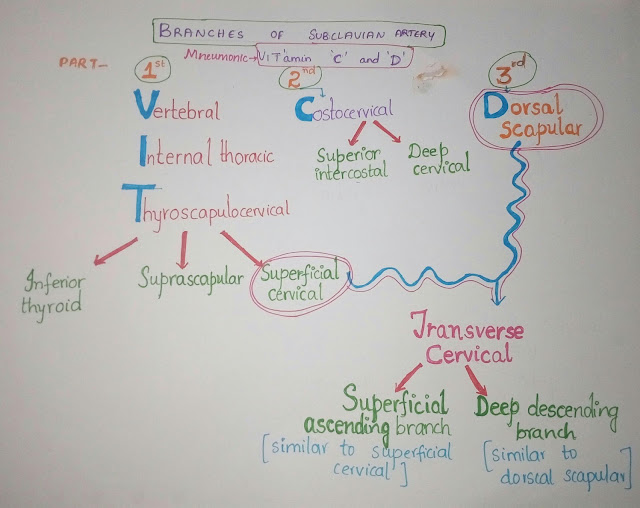 BRANCHES OF SUBCLAVIAN ARTERY
Mneumonic→ VITamin 'C' and 'D'
PART— 1st 2nd 3rd
Vertebral
Internal thoracic
Thyroscapulocervical
Inferior
thyroid
Suprascapular
Superficial
cervical
Costocervical
Superior
intercostal
Deep
cervical
Dorsal
Scapular
Transverse
Cervical
Superficial
ascending branch
[similar to superficial
cervical]
Deep descending
branch
[similar to
dorscal scapular]